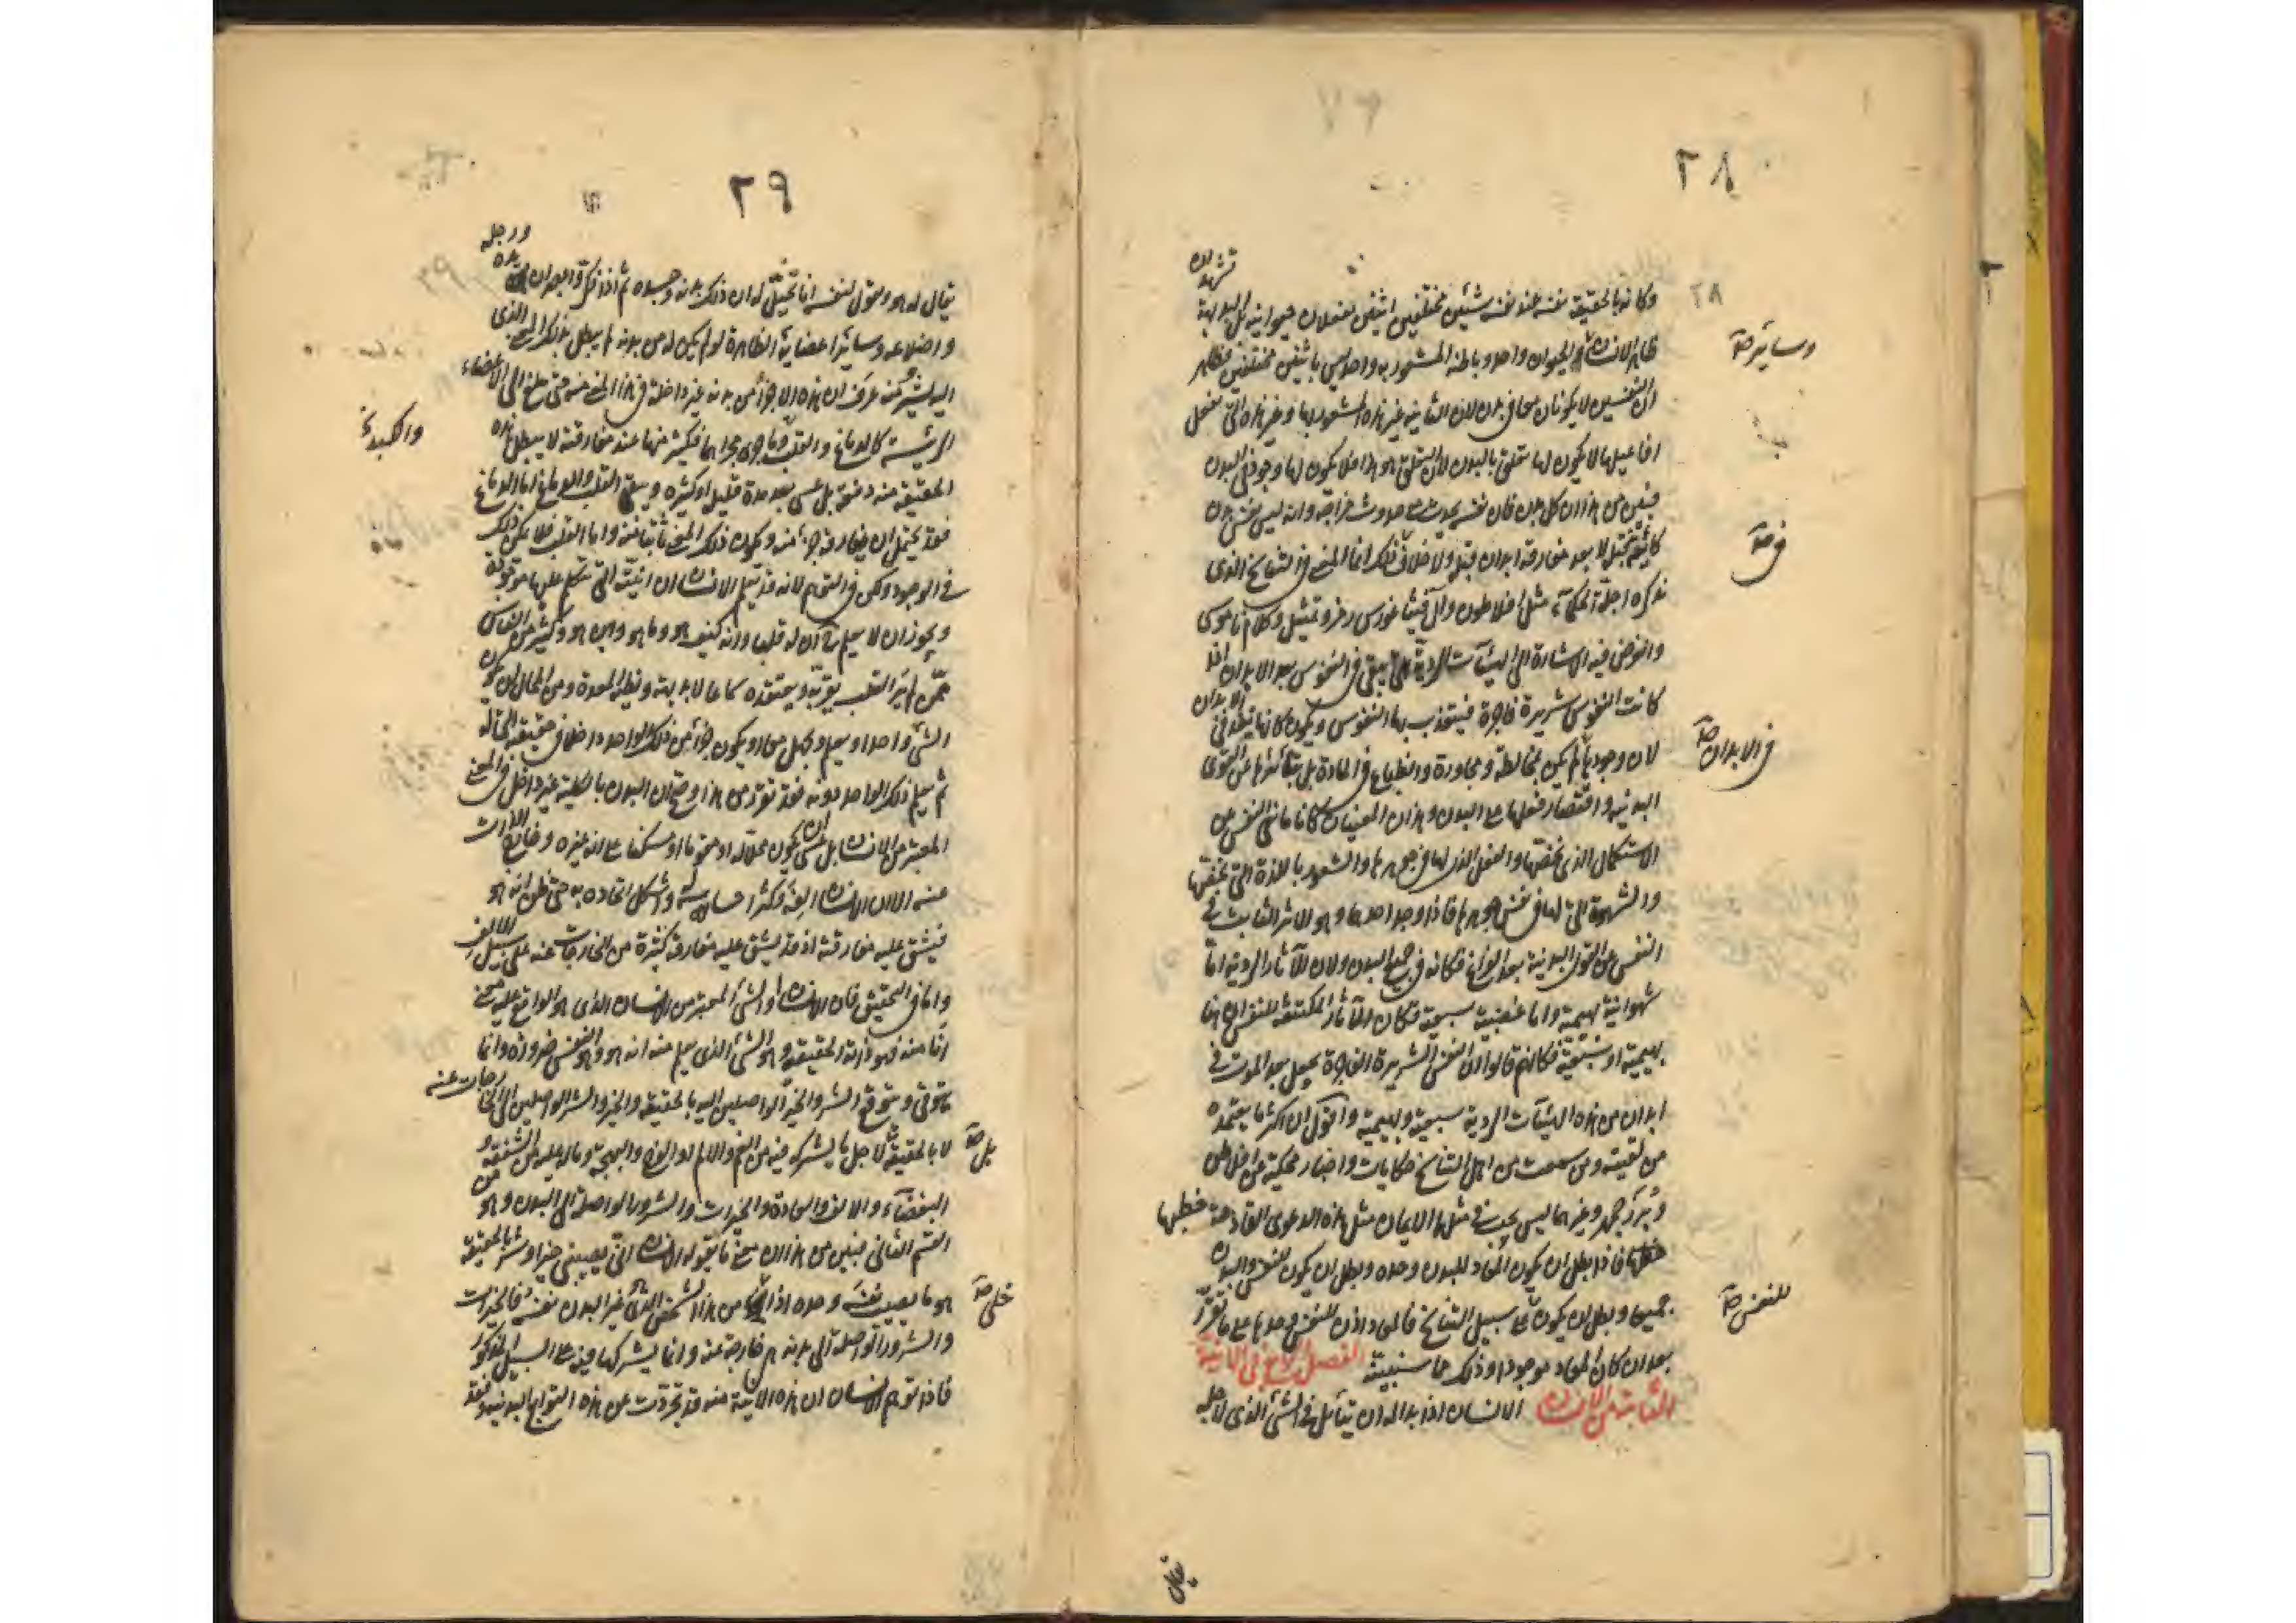 ٢٨
تشهد ان
وكانه بالحقيقة نفسه عند نفسه شيئين مختلفين اثنين يفعلان حيوانية بل البديهة
٢٨
وسائر صح
ظاهر الانسان والحيوان واحد وباطنه المشعور به واحد ليس باثنين مختلفين فظاهر
ان النفسين لا يكونان معا في بدن لان الثانية غير هذه المشعور بها وغير هذه التى تفعل
افاعيلها لا يكون لها تعلق بالبدن لان التعلق هو هذا فلا يكون لها وجود في البدن
فبين من هذا ان كل بدن فان نفسه يحدث مع حدوث مزاجه وانه ليس نفس بدن
في صح
كائنة قبل لا بعد مفارقة ابدان قبله ولا خلاف ذلك انما المعنى في التناسخ الذى
يذكره اجلة الحكماء مثل افلاطون وال فيثاغورس رمز وتمثيل وكلام ناموسى
والغرض فيه الاشارة الى الهيئات الردية التى تبقى في النفوس بعد الابدان اذا
كانت النفوس شريرة فاجرة فيتعذب بها النفوس ويكون كانها بعد في الابدان
في الابدان صح
لان وجودها لم يكن بمخالطة ومجاورة وانطباع في المادة بل بتأثرها عن القوى
البدنية واقتصار فعلها على البدن وهذان المعنيان كانا مانعى النفس عن
الاستكمال الذى يخصها والفعل الذى لها في جوهرها والشعور باللذة التى تخصها
والشهوة التى لها في نفس جوهرها فاذا وجد احدهما وهو الاثر الثابت في
النفس من القوى البدنية بعد الفراغ فكانه في جميع البدن ولان الآثار الردية اما
شهوانية بهيمية واما غضبية سبعية فكان الآثار المكتنفة للنفس ابدانا
بهيمية او سبعية فكانهم قالوا ان النفس الشريرة الفاجرة تحصل بعد الموت في
ابدان من هذه الهيئات الردية سبعية وبهيمية واقول ان اكثر ما يعتمده
من لقيته ومن سمعت من اهل التناسخ حكايات واخبار محكية عن افلاطن
وبزرجمهر وغيرهما ليس يجب في مثلها الايمان مثل هذه الدعوى
فاذا بطل ان يكون المعاد للبدن وحده وبطل ان يكون للنفس والبدن
للنفس صح
جميعا وبطل ان يكون على سبيل التناسخ فالمعاد اذن للنفس وحدها على ما تقرر
بعد ان كان المعاد موجودا وذلك مما سنبينه الفصل الرابع في الانية
الثابتة من الانسان الانسان اذا بدا له ان يتأمل في الشئ الذى لاجله
يقال
٢٩
ورجله
يده
يقال له هو ويقول لنفسه انا تخيل له ان ذلك بدنه وجسده ثم اذا فكر وابصر ان
واضلاعه وسائر اعضايه الظاهرة لو لم يكن له من بدنه لم يبطل بذلك المعنى الذى
اليه يشير منه عرف ان هذه الاجزاء من بدنه غير داخلة في هذا المعنى منه حتى يبلغ الى الاعضاء
والكبد
الرئيسة كالدماغ والقلب وما يجرى مجراهما فكثير منها عند مفارقته لا يبطل هذه
الحقيقة منه دفعة بل عسى بعد مدة قليل او كثيره ويبقى القلب والدماغ اما الدماغ
فقد يحتمل ان يفارقه جزء منه ويكون ذلك المعنى ثابتا منه واما القلب فلا يمكن ذلك
في الوجود ولكن في التوهم لانه قد يعلم الانسان ان انيته التى نتكلم عليها موجودة
ويجوز ان لا يعلم مع ان له قلبا وانه كيف هو وما هو واين هو وكثير من الناس
ممن لم ير القلب يقر به ويعتقده سماعا لا بديهة ويظنه المعدة ومن المحال ان يكون
الشئ واحدا ويعلم ويجهل معا او يكون جزء من ذلك الواحد داخلا في حقيقته لا محالة
ثم يعلم ذلك الواحد دونه فقد تقرر من هذا وضح ان البدن بالكلية غير داخل في المعنى
المعتبر من الانسان بل عسى ان يكون محلا له او مقوما او مسكنا على انه غيره وخارج الذات
عنه الا ان الانسان الفه وكثر احساسه له واشكل اتحاده به حتى ظن انه هو
فيشق عليه مفارقته اذ قد يشق عليه مفارقة كثيرة من الخارجات عنه على سبيل الالف
واما في التحقيق فان الانسان او الشئ المعتبر من الانسان الذى هو الواقع عليه معنى
انا منه فهو ذاته الحقيقة وهو الشئ الذى يعلم منه انه هو وهو النفس ضرورة وانما
يتوقى ويتوقع الشر والخير الواصلين اليه بالحقيقة والخير والشر الواصلين الى الخارجات عنه
بل صح
لا بالحقيقة لاجل ما يشركه فيه من الغم والالم او الفرح والبهجة وما له عليه من الشفقة و
البغضاء والالف والعادة والخيرات والشرور الواصلة الى البدن وهو من
القسم الثانى فبين من هذا ان معنى ما يقوله الانسان انى يصيبنى خير او شر بالحقيقة
خلى صح
هو ما يصيب نفسه وحده اذا من هذا الشخص الذى غير البدن نفسه فالخيرات
والشرور الواصلة الى بدنه هى خارجة عنه وانما يشركها فيه على السبيل المذكور
فاذا توهم الانسان ان هذه الانية منه قد تجردت عن هذه التوابع البدنية فقد